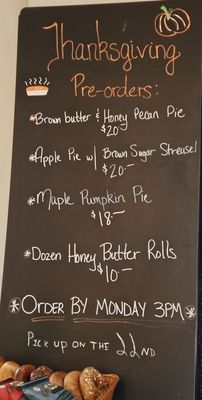 Thanksgiving
Pre-orders:
*Brown butter & Honey Pecan Pie
$20-
*Apple Pie w/ Brown Sugar Streusel
$20.-
*Maple Pumpkin Pie
$18.-
*Dozen Honey Butter Rolls
$10.-
*ORDER BY MONDAY 3PM*
PICK UP ON THE 22ND